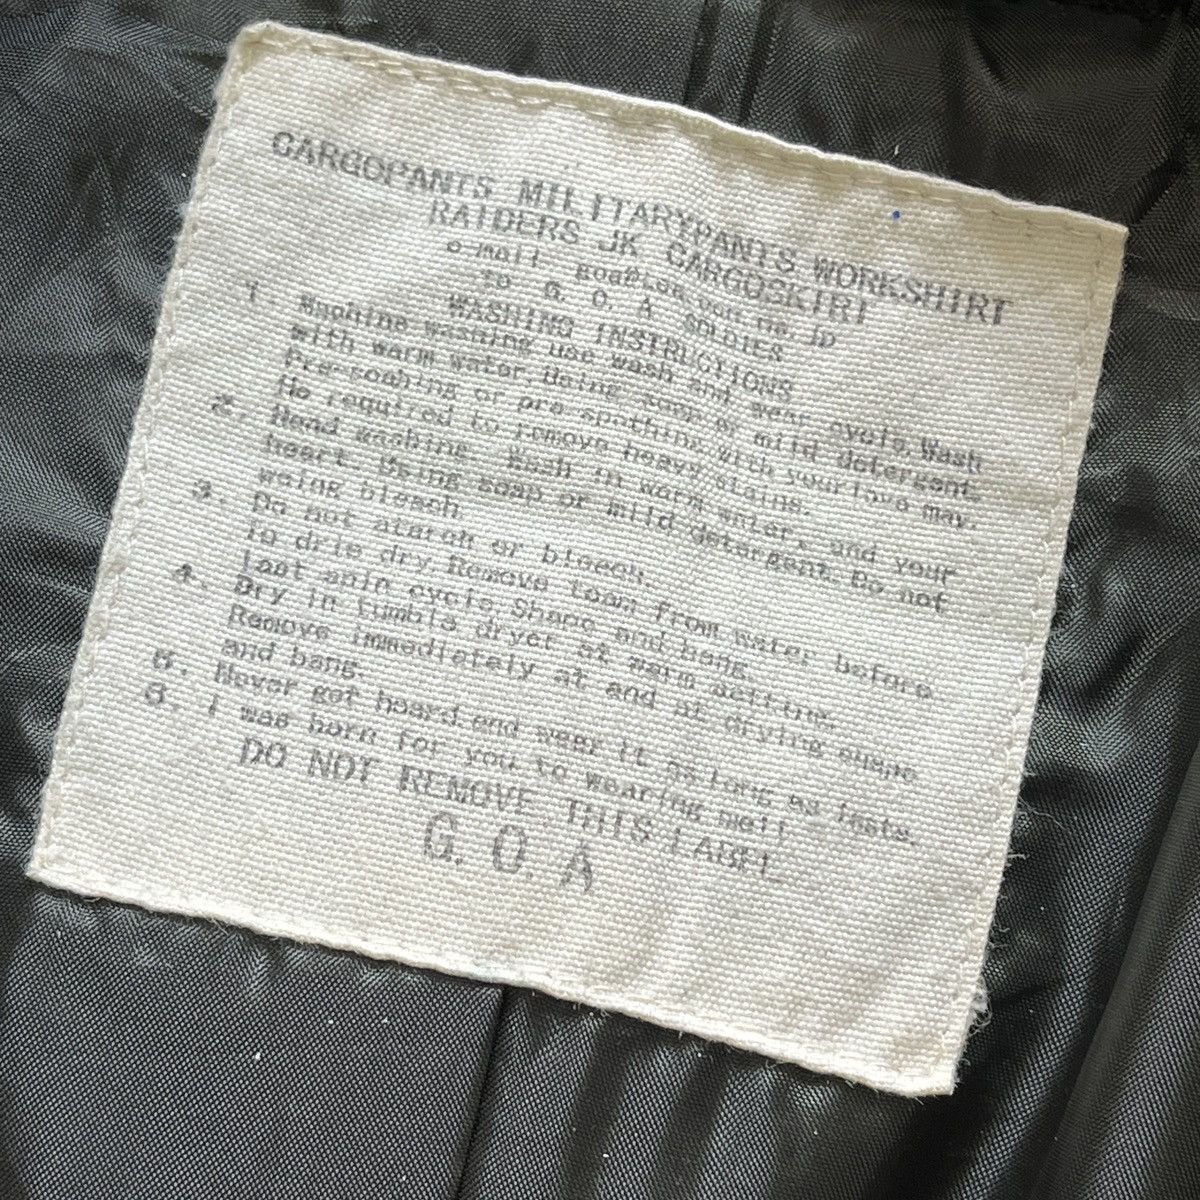 CARGOPANTS MILITARYPANTS WORKSHIRT
RAIDERS JK CARGOSKIRT
e-mail
to G. O. A SOLDIES
WASHING INSTRUCTIONS
1. Machine washing use wash and wear cycle, Wash
with warm water, Using soap or mild detergent.
Pre-soahing or pre spothing with your love may.
He required to remove heavy stains.
2. Hand washing. Wash in warm water, and your
heart. Using soap or mild detergent. Do not
using bleach.
3. Do not atarch or bleech.
To drie dry, Remove from water before
last spin cycle, Shape and hang.
4. Dry in tumble dryer at warm setting.
Remove immediately at and at drying shape
and hang.
5. Never get heard and wear it as long as lasts.
6. I was born for you to wearing well
DO NOT REMOVE THIS LABEL
G. O. A